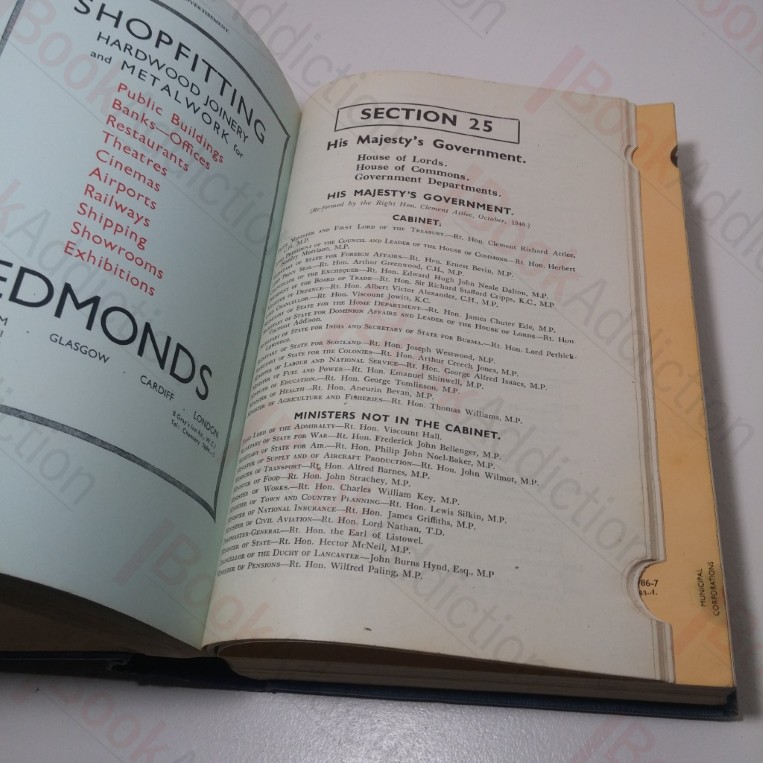 ADVERTISEMENT
SHOPFITTING
HARDWOOD JOINERY
and METALWORK for
Public Buildings
Banks—Offices
Restaurants
Theatres
Cinemas
Airports
Railways
Shipping
Showrooms
Exhibitions
EDMONDS
GLASGOW · CARDIFF · LONDON
SECTION 25
His Majesty's Government.
House of Lords.
House of Commons.
Government Departments.
HIS MAJESTY'S GOVERNMENT.
(Reformed by the Right Hon. Clement Attlee, October, 1946)
CABINET.
Minister and First Lord of the Treasury—Rt. Hon. Clement Richard Attlee,
C.H., M.P.
President of the Council and Leader of the House of Commons—Rt. Hon. Herbert
Morrison, M.P.
of State for Foreign Affairs—Rt. Hon. Ernest Bevin, M.P.
Privy Seal—Rt. Hon. Arthur Greenwood, C.H., M.P.
of the Exchequer—Rt. Hon. Edward Hugh John Neale Dalton, M.P.
of the Board of Trade—Rt. Hon. Sir Richard Stafford Cripps, K.C., M.P.
of Defence—Rt. Hon. Albert Victor Alexander, C.H., M.P.
Chancellor—Rt. Hon. Viscount Jowitt, K.C.
of State for the Home Department—Rt. Hon. James Chuter Ede, M.P.
of State for Dominion Affairs and Leader of the House of Lords—Rt. Hon.
Addison.
of State for India and Secretary of State for Burma—Rt. Hon. Lord Pethick-
Lawrence.
of State for Scotland—Rt. Hon. Joseph Westwood, M.P.
of State for the Colonies—Rt. Hon. Arthur Creech Jones, M.P.
of Labour and National Service—Rt. Hon. George Alfred Isaacs, M.P.
of Fuel and Power—Rt. Hon. Emanuel Shinwell, M.P.
of Education—Rt. Hon. George Tomlinson, M.P.
of Health—Rt. Hon. Aneurin Bevan, M.P.
of Agriculture and Fisheries—Rt. Hon. Thomas Williams, M.P.
MINISTERS NOT IN THE CABINET.
Lord of the Admiralty—Rt. Hon. Viscount Hall.
of State for War—Rt. Hon. Frederick John Bellenger, M.P.
of State for Air—Rt. Hon. Philip John Noel-Baker, M.P.
of Supply and of Aircraft Production—Rt. Hon. John Wilmot, M.P.
of Transport—Rt. Hon. Alfred Barnes, M.P.
of Food—Rt. Hon. John Strachey, M.P.
of Works—Rt. Hon. Charles William Key, M.P.
of Town and Country Planning—Rt. Hon. Lewis Silkin, M.P.
of National Insurance—Rt. Hon. James Griffiths, M.P.
of Civil Aviation—Rt. Hon. Lord Nathan, T.D.
-General—Rt. Hon. the Earl of Listowel.
of State—Rt. Hon. Hector McNeil, M.P.
of the Duchy of Lancaster—John Burns Hynd, Esq., M.P
of Pensions—Rt. Hon. Wilfred Paling, M.P.
86-7
MUNICIPAL
CORPORATIONS
BookAddiction